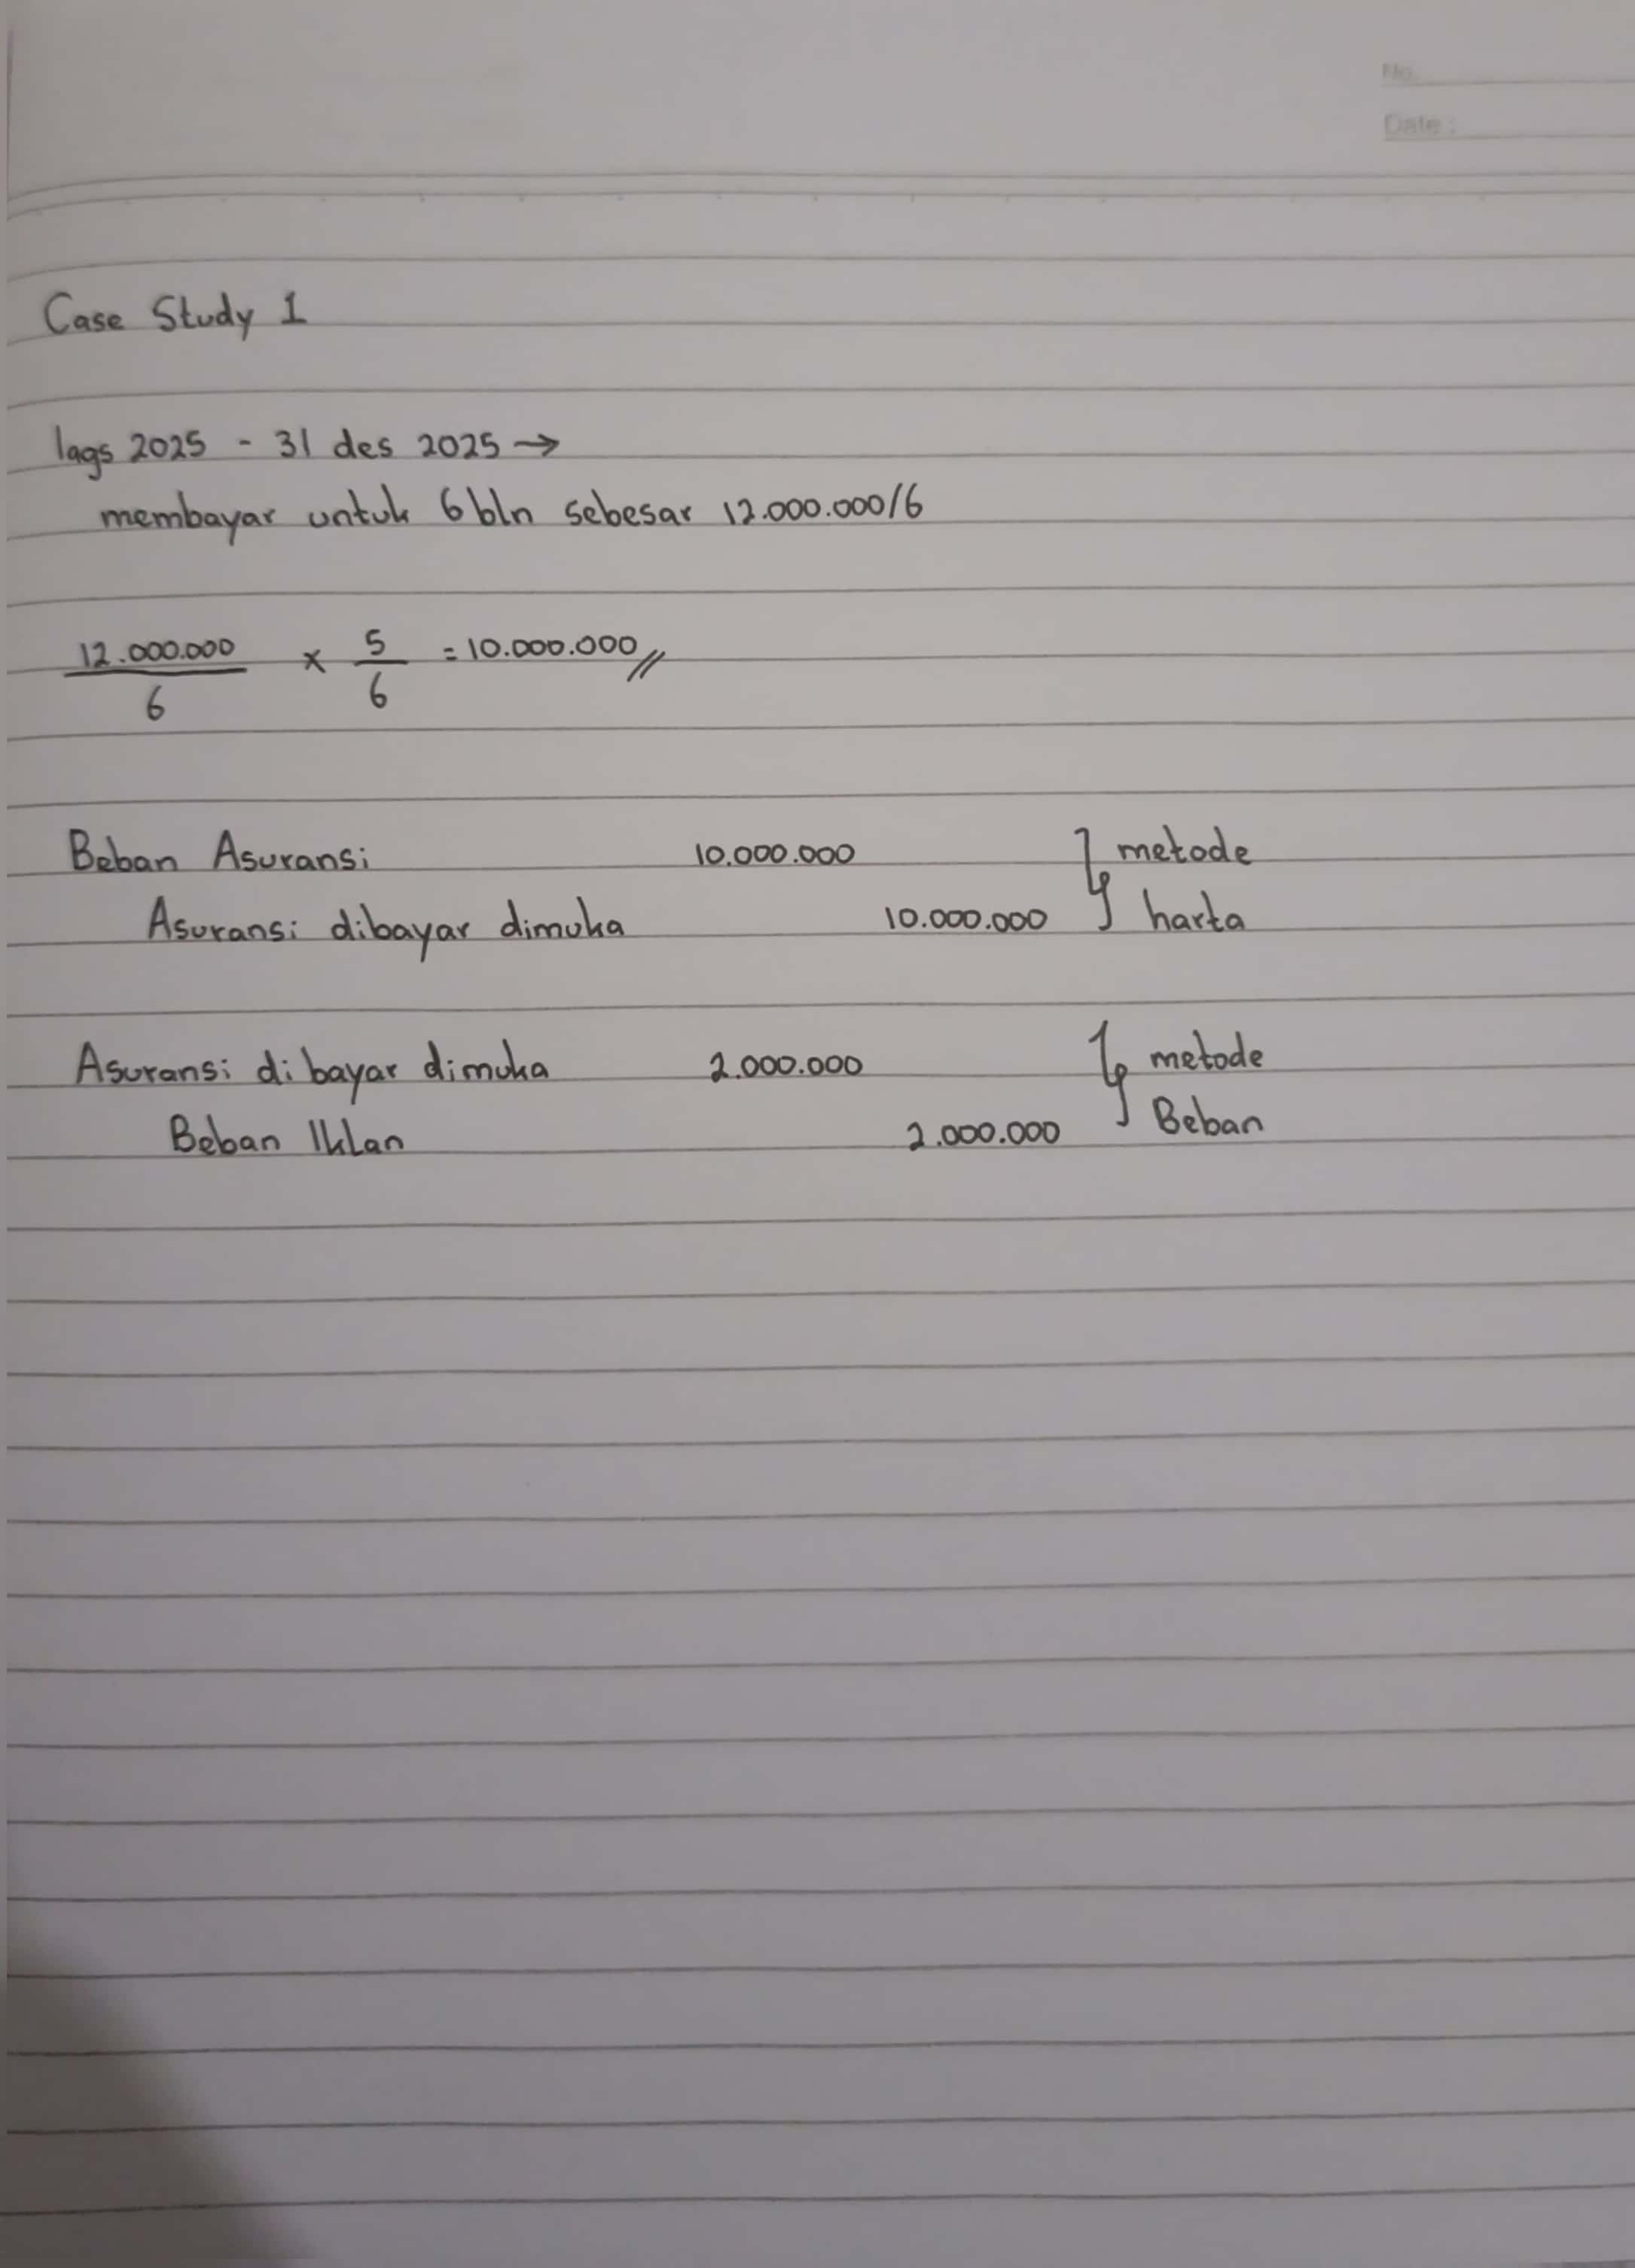 No.
Date :
Case Study 1
1ags 2025 - 31 des 2025 →
membayar untuk 6 bln sebesar 12.000.000/6
12.000.000 / 6 x 5 / 6 = 10.000.000 //
Beban Asuransi 10.000.000 } metode
Asuransi dibayar dimuka 10.000.000 harta
Asuransi dibayar dimuka 2.000.000 } metode
Beban Iklan 2.000.000 Beban